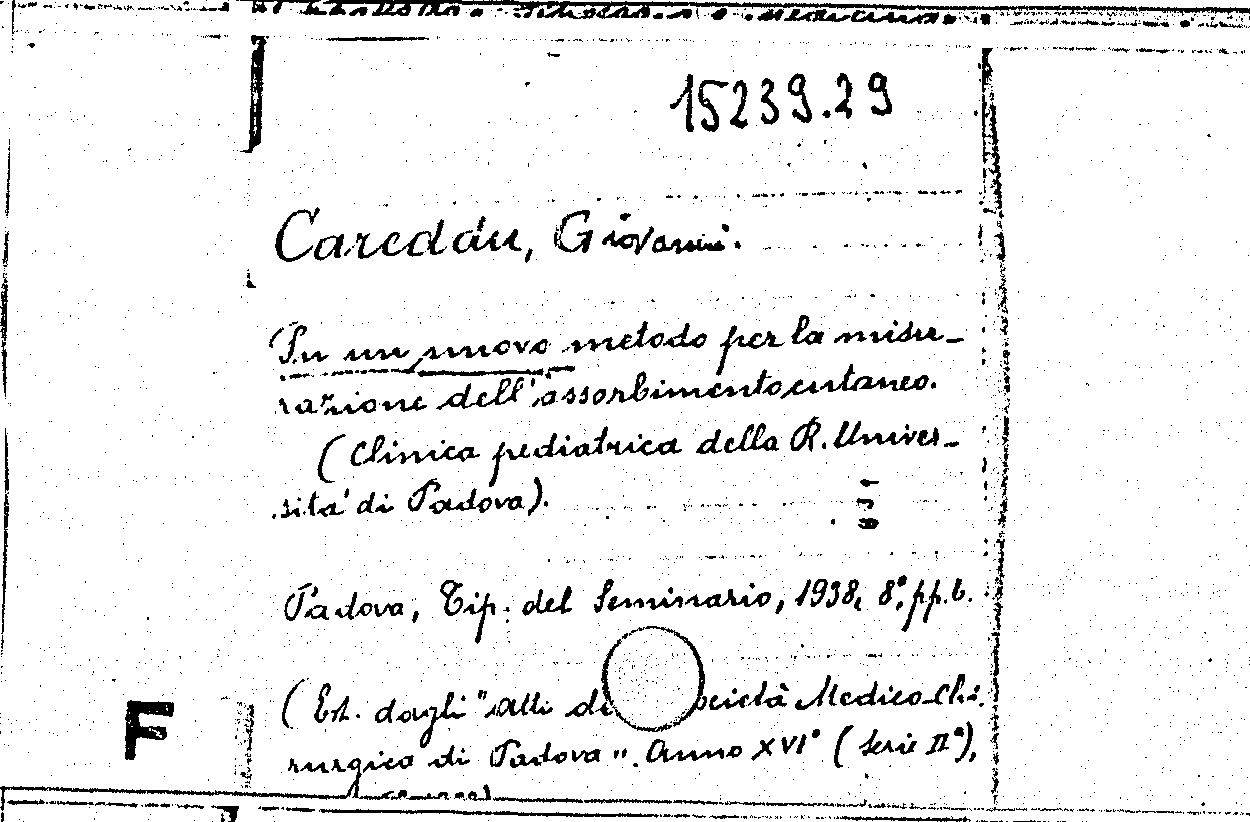 15239.29
Careddu, Giovanni.
Su un nuovo metodo per la misu-
razione dell'assorbimento cutaneo.
(Clinica pediatrica della R. Univer-
sita' di Padova).
Padova, Tip. del Seminario, 1938, 8°, pp. 6.
(Est. dagli "Atti de ocietà Medico-Chi.
F
rurgica di Padova". Anno XVI° (Serie IIª),